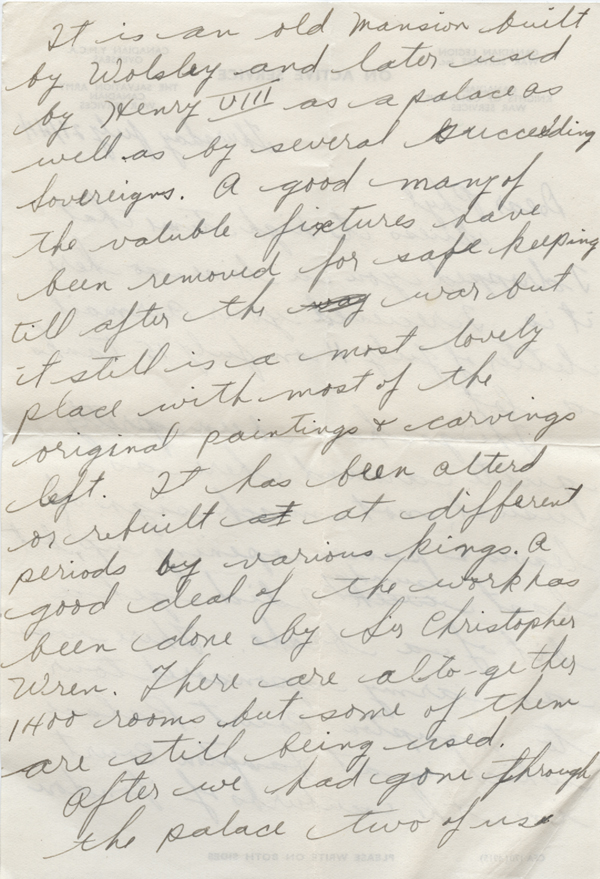 It is an old mansion built
by Wolsley and later used
by Henry VIII as a palace as
well as by several succeeding
Sovereigns. A good many of
the valuble fixtures have
been removed for safe keeping
till after the way war but
it still is a most lovely
place with most of the
original paintings & carvings
left. It has been alterd
or rebuilt at at different
periods by various kings. A
good deal of the work has
been done by Sir Christopher
Wren. There are alto-gether
1400 rooms but some of them
are still being used.
After we had gone through
the palace two of us